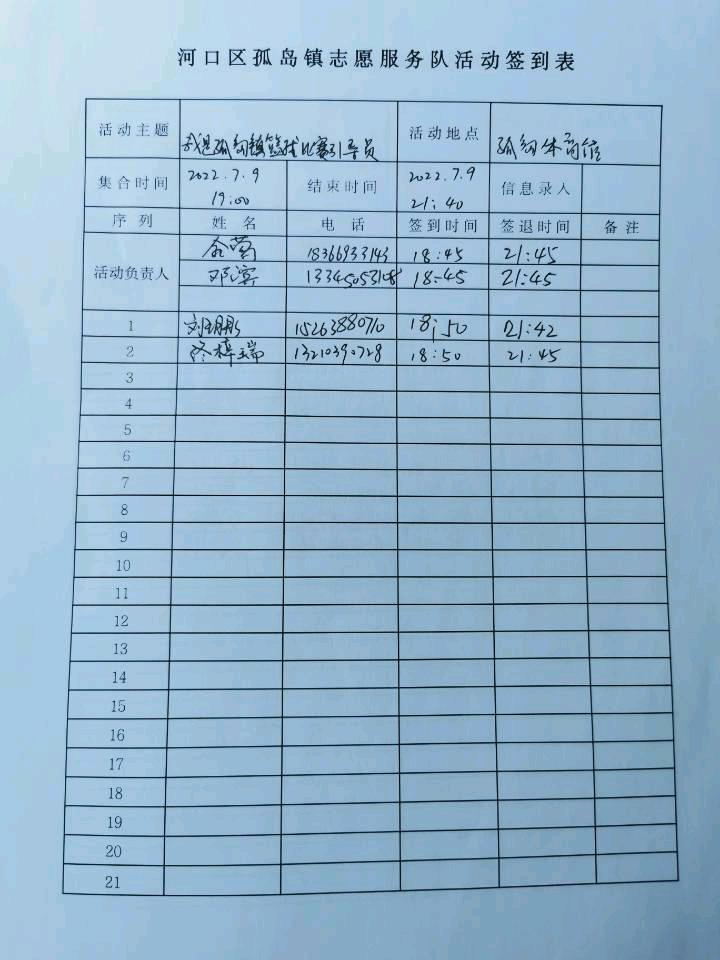 河口区孤岛镇志愿服务队活动签到表
活动主题 我是孤岛镇篮球比赛引导员 活动地点 孤岛体育馆
集合时间 2022.7.9 19:00 结束时间 2022.7.9 21:40 信息录入
序列 姓名 电话 签到时间 签退时间 备注
活动负责人
18366933143 18:45 21:45
邓滨 13345053108 18:45 21:45
1 15263880710 18:50 21:42
2 13210390728 18:50 21:45
3
4
5
6
7
8
9
10
11
12
13
14
15
16
17
18
19
20
21